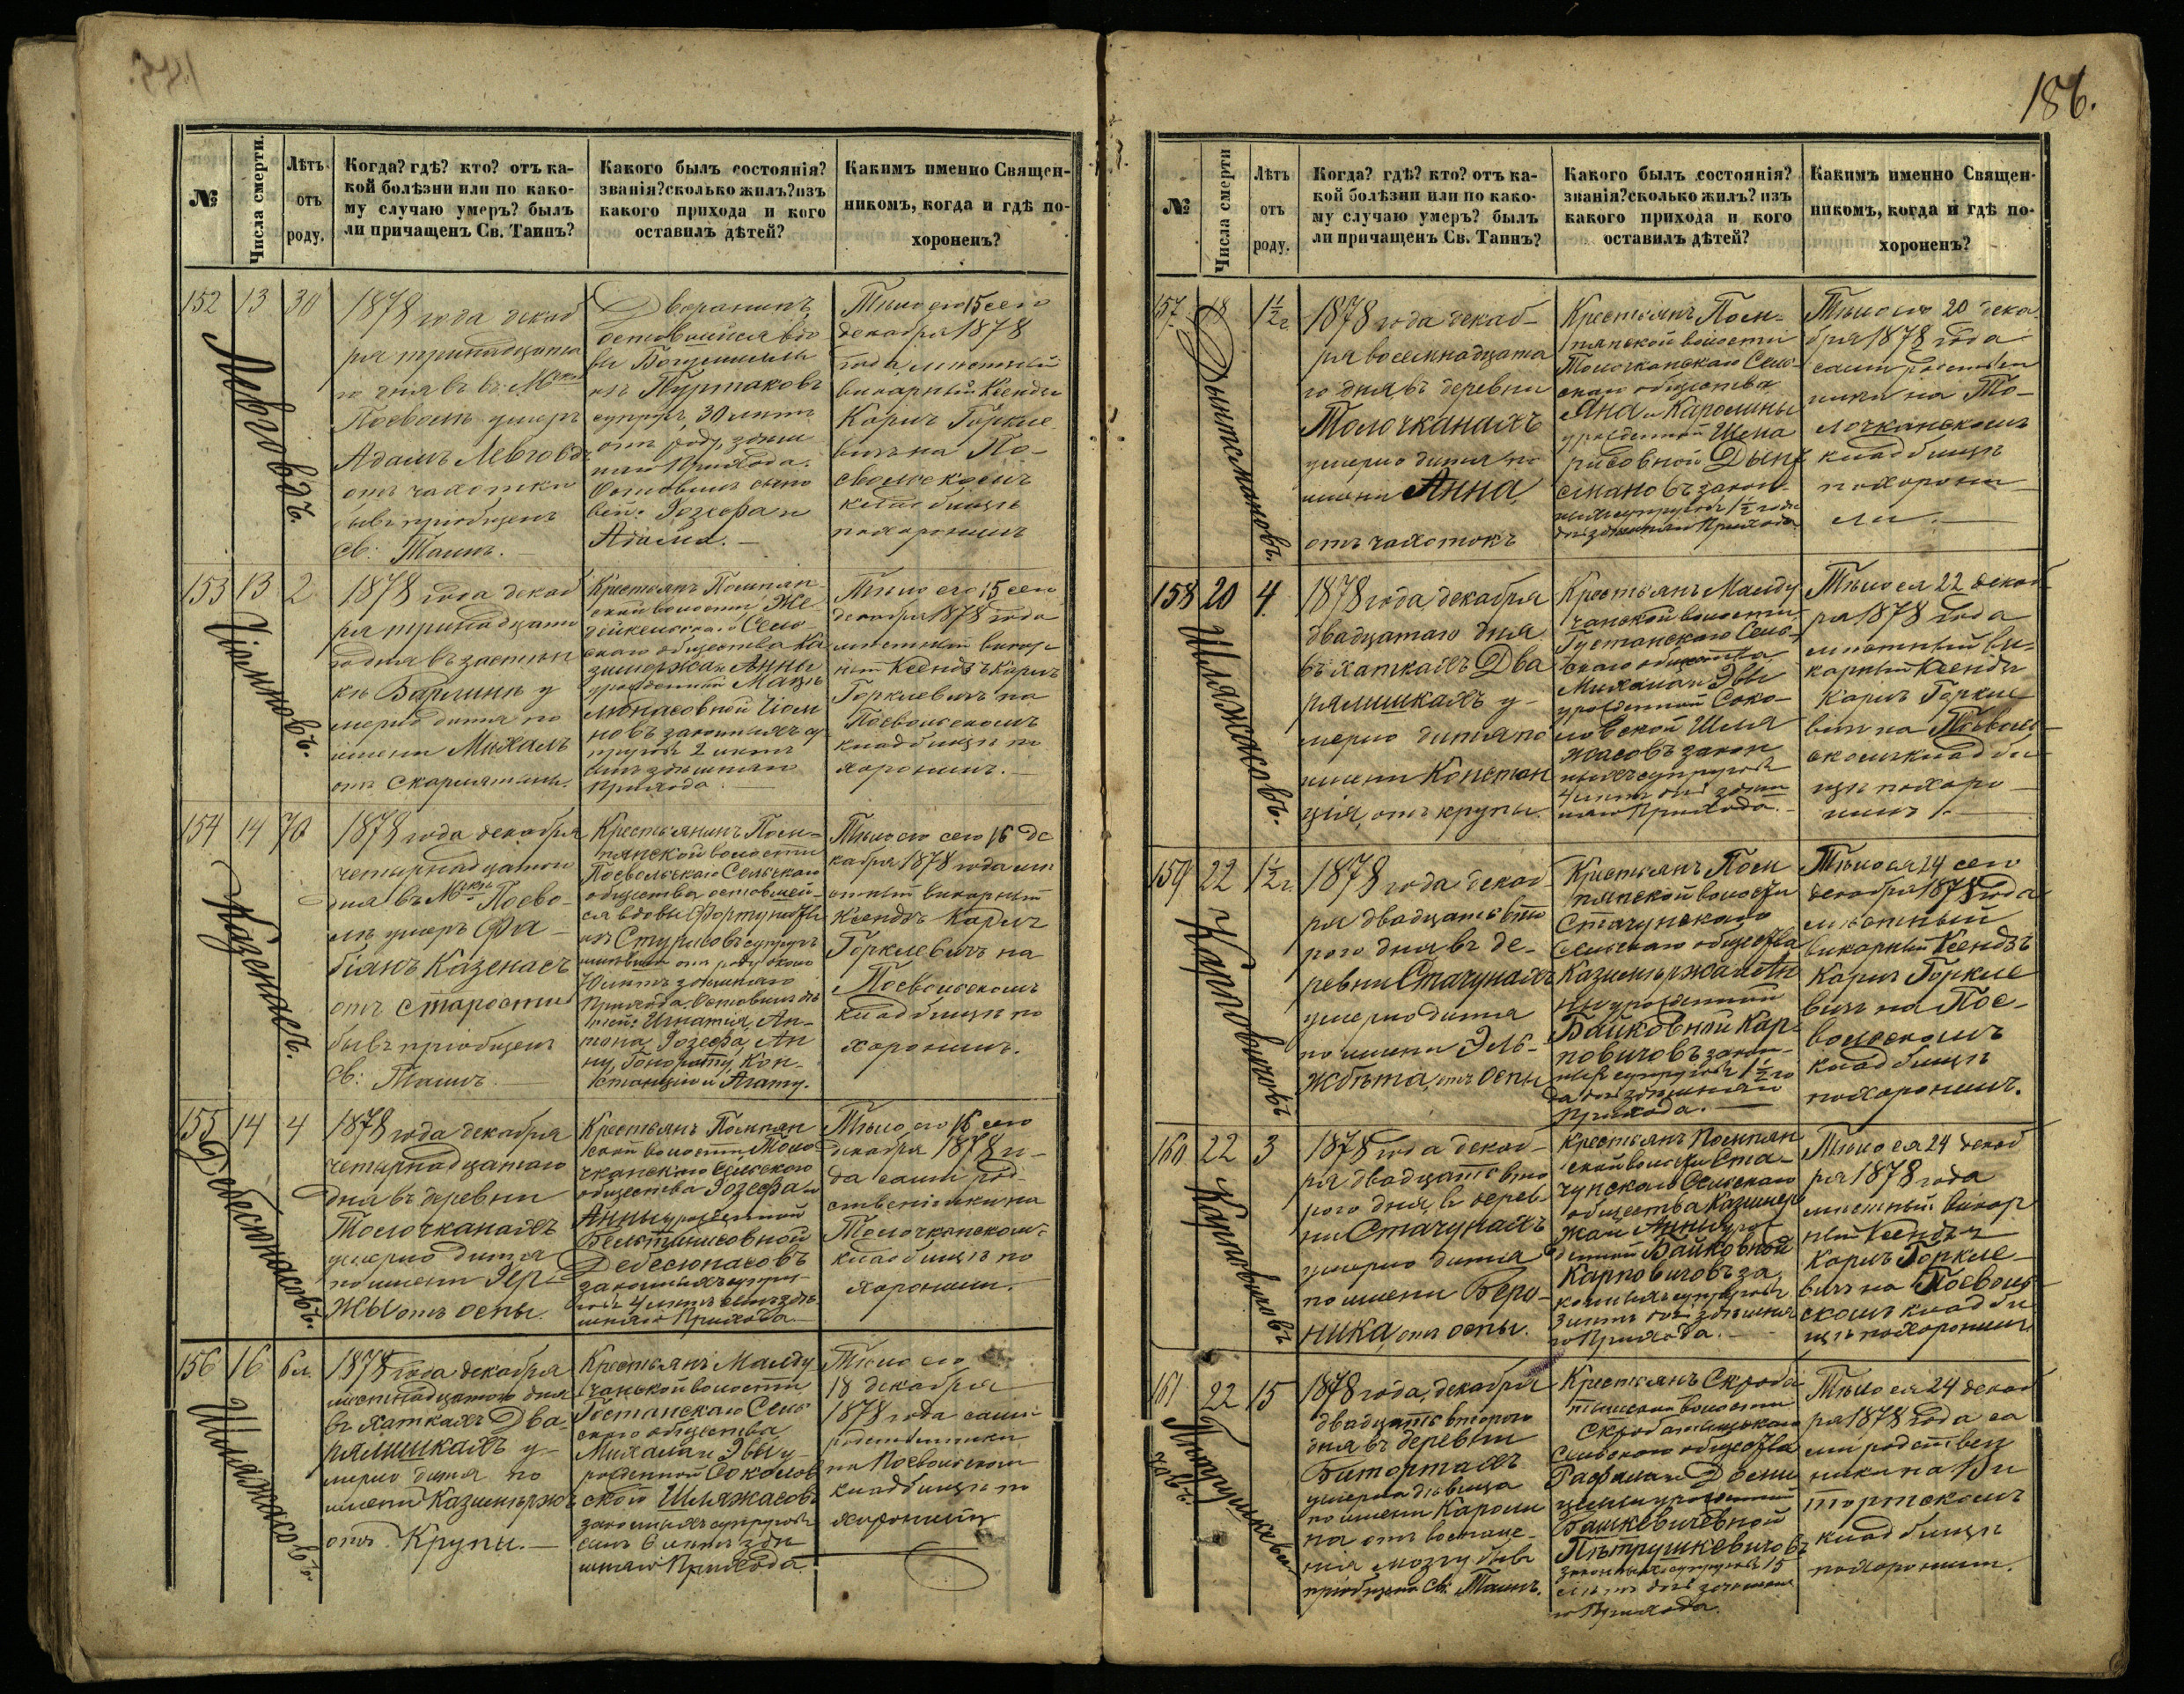 186.
№
Числа смерти.
Лѣтъ
отъ
роду.
Когда? гдѣ? кто? отъ ка-
кой болѣзни или по како-
му случаю умеръ? былъ
ли причащенъ Св. Таинъ?
Какого былъ состоянія?
званія? сколько жилъ? изъ
какого прихода и кого
оставилъ дѣтей?
Какимъ именно Священ-
никомъ, когда и гдѣ по-
хороненъ?
152
13
30
1878 года декаб
ря тринадцата
го дня въ
Поеволь умеръ
Адамъ Левговдъ
отъ чахотки
бывъ пріобщенъ
Св: Таинъ.
Дворянинъ
супругъ, 30 лѣтъ
отъ роду, здѣш
няго Прихода.
Оставилъ сыно
вей: Іозефа и
Адама.
Тѣло его 15 сего
декабря 1878
года мѣстный
викарный Ксендзъ
Карлъ Горкле
вичъ на По-
евольскомъ
кладбищѣ
похоронилъ
153
13
2
1878 года декаб
ря тринадцата
го дня въ застѣн
кѣ у
мерло дитя по
имени Михалъ
отъ скарлятины.
Крестьянъ Помпян
ской волости
Сель-
скаго общества Ка
зимержа и Анны
урожденной
законныхъ су
пруговъ 2 лѣтъ
сынъ здѣшняго
Прихода.
Тѣло его 15 сего
декабря 1878 года
мѣстный викар-
ный Ксендзъ Карлъ
Горклевичъ на
Поевольскомъ
кладбищѣ по
хоронилъ.
154
14
70
Казенасъ.
1878 года декабря
четырнадцатаго
дня въ Поево-
лѣ умеръ Фа-
біянъ Казенасъ
отъ старости
бывъ пріобщенъ
Св: Таинъ.
Крестьянинъ Помпянской волости
Поевольскаго Сельскаго
общества оставшей-
ся вдовы
супругъ
70 лѣтъ здѣшняго
Прихода. Оставилъ дѣ
тей: Игнатія, Ан-
тона, Іозефа, Ан
ну, Гонорату, Кон-
станцію и Агату.
Тѣло его сего 16 де
кабря 1878 года мѣ
стный викарный
Ксендзъ Карлъ
Горклевичъ на
Поевольскомъ
кладбищѣ по
хоронилъ.
155
14
4
Дебесюнасовъ.
1878 года декабря
четырнадцатаго
дня въ деревни
Толочканахъ
умерло дитя
по имени Іер-
жы отъ оспы.
Крестьянъ Помпян
ской волости Толо-
чканскаго Сельскаго
общества Іозефа и
Анны урожденной
Дебесюнасовъ
законныхъ супру-
говъ 4 лѣтъ сынъ здѣ
шняго Прихода.
Тѣло его 16 сего
декабря 1878 го-
да сами род-
ственники на
Толочканскомъ
кладбищѣ по
хоронили.
156
16
6 л.
Шляжасовъ.
1878 года декабря
шестнадцатаго дня
въ хаткахъ Два-
рялишкахъ у-
мерло дитя по
имени Казимержъ
отъ Крупы.
Крестьянъ
волости
Сель-
скаго общества
Михала и Эвы у-
рожденной Соколов
ской Шляжасовъ
законныхъ супруговъ
сынъ 6 лѣтъ здѣ
шняго Прихода.
Тѣло его
18 декабря
1878 года сами
родственники
на Поевольскомъ
кладбищѣ по
хоронили
№
Числа смерти
Лѣтъ
отъ
роду.
Когда? гдѣ? кто? отъ ка-
кой болѣзни или по како-
му случаю умеръ? былъ
ли причащенъ Св. Таинъ?
Какого былъ состоянія?
званія? сколько жилъ? изъ
какого прихода и кого
оставилъ дѣтей?
Какимъ именно Священ-
никомъ, когда и гдѣ по-
хороненъ?
157
18
1½ г.
1878 года декаб-
ря восемнадцата
го дня въ деревни
Толочканахъ
умерло дитя по
имени Анна
отъ чахотокъ
Крестьянъ Пом-
пянской волости
Толочканскаго Сель-
скаго общества
Яна и Каролины
урожденной
законныхъ супруговъ 1½ года
дочь здѣшняго Прихода.
Тѣло его 20 дека
бря 1878 года
сами родствен
ники на То-
лочканскомъ
кладбищѣ
похорони
ли.
158
20
4
Шляжасовъ.
1878 года декабря
двадцатаго дня
въ хаткахъ Два
рялишкахъ у-
мерло дитя по
имени Констан
ція, отъ крупы.
Крестьянъ
волости
Сель-
скаго общества
Михала и Эвы
урожденной Соко-
ловской Шля
жасовъ закон
ныхъ супруговъ
4 лѣтъ дочь здѣш
няго Прихода.
Тѣло ея 22 декаб
ря 1878 года
мѣстный ви-
карный Ксендзъ
Карлъ Горкле
вичъ на Поеволь
скомъ кладби
щѣ похоро
нилъ.
159
22
1½ г.
Карповичовъ
1878 года декаб-
ря двадцать вто
рого дня въ де-
ревни Стачунахъ
умерло дитя
по имени Эль-
жбѣта, отъ оспы
Крестьянъ Пом
пянской волости
Стачунскаго
Сельскаго общества
Казимержа и Ан
ны урожденной
Байковной Кар-
повичовъ закон-
ныхъ супруговъ 1½ го
да дочь здѣшняго
Прихода.
Тѣло ея 24 сего
декабря 1878 года
мѣстный
викарный Ксендзъ
Карлъ Горкле
вичъ на Пое-
вольскомъ
кладбищѣ
похоронилъ.
160
22
3
Карповичовъ
1878 года декаб-
ря двадцать вто
рого дня, въ дерев-
ни Стачунахъ
умерло дитя
по имени Веро-
ника, отъ оспы.
Крестьянъ Помпян
ской волости Ста-
чунскаго Сельскаго
общества Казимер
жа и Анны уро
жденной Байковной
Карповичовъ за
конныхъ супруговъ
3 лѣтъ дочь здѣшня
го Прихода.
Тѣло ея 24 декаб
ря 1878 года
мѣстный викар
ный Ксендзъ
Карлъ Горкле-
вичъ на Поеволь
скомъ кладби
щѣ похоронилъ
161
22
15
1878 года, декабря
двадцать второго
дня въ деревни
Битортахъ
умерла дѣвица
по имени Кароли
на отъ воспале-
нія мозгу бывъ
пріобщена Св: Таинъ.
Крестьянъ Скроба-
тишской волости
Скробатишскаго
Сельскаго общества
Рафала и
урожденной
Пѣтрушкевичовъ
законныхъ супруговъ 15
лѣтъ дочь здѣшня
го Прихода.
Тѣло ея 24 декаб
ря 1878 года са
ми родствен
ники на Би
тортскомъ
кладбищѣ
похоронили.